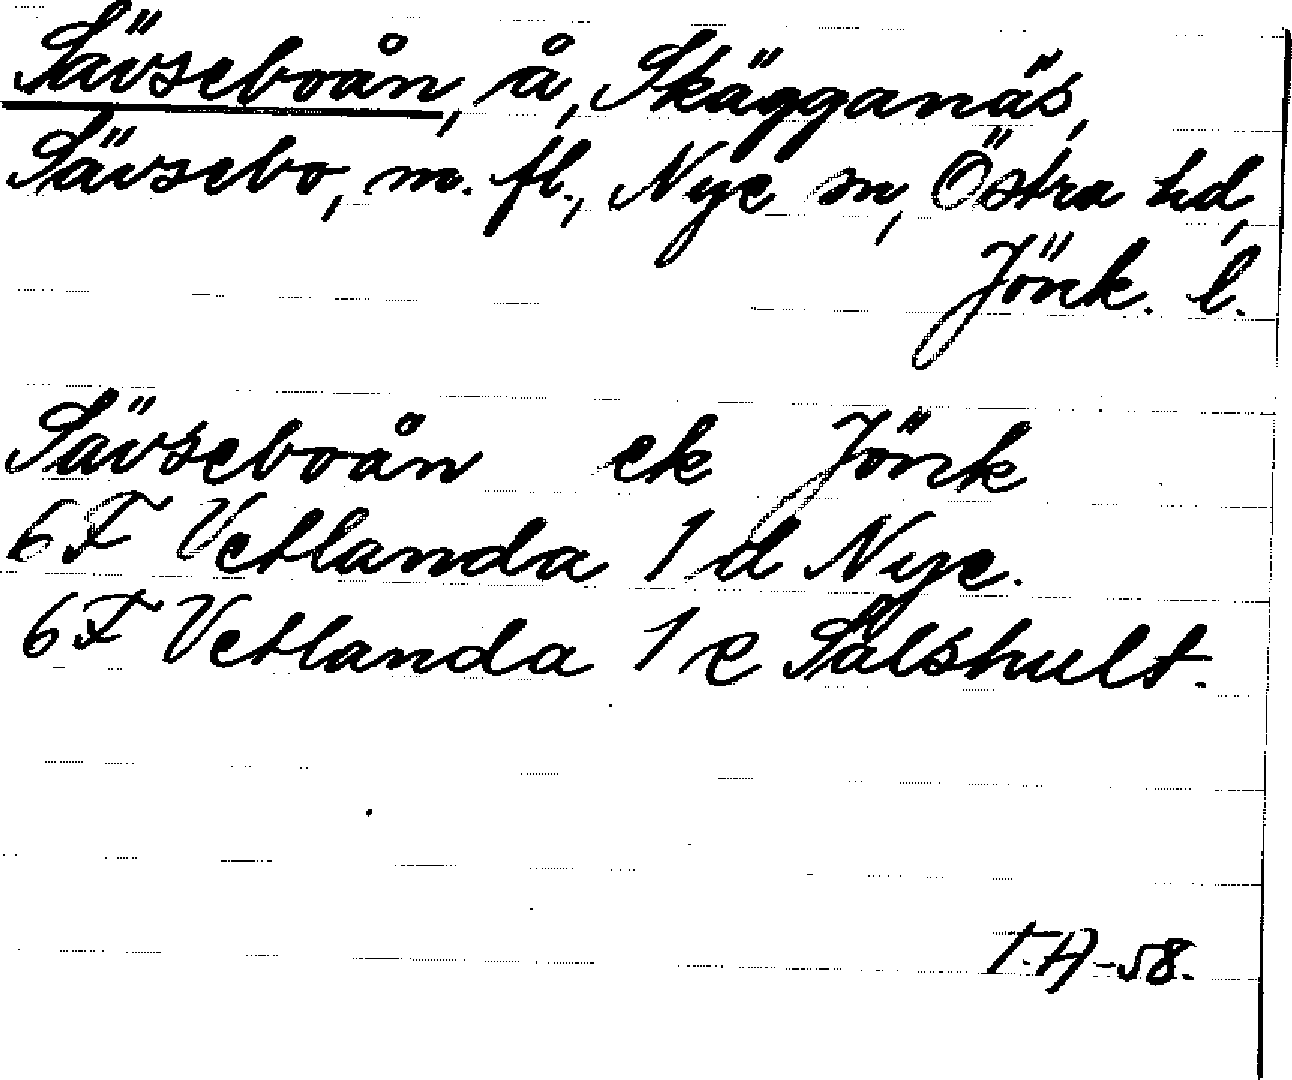 Sävseboån, å, Skägganäs,
Sävsebo, m. fl., Nye sn, Östra hd,
Jönk. l.
Sävseboån ek Jönk
6F Vetlanda 1 d Nye.
6F Vetlanda 1 e Stålshult.
T.H-58.